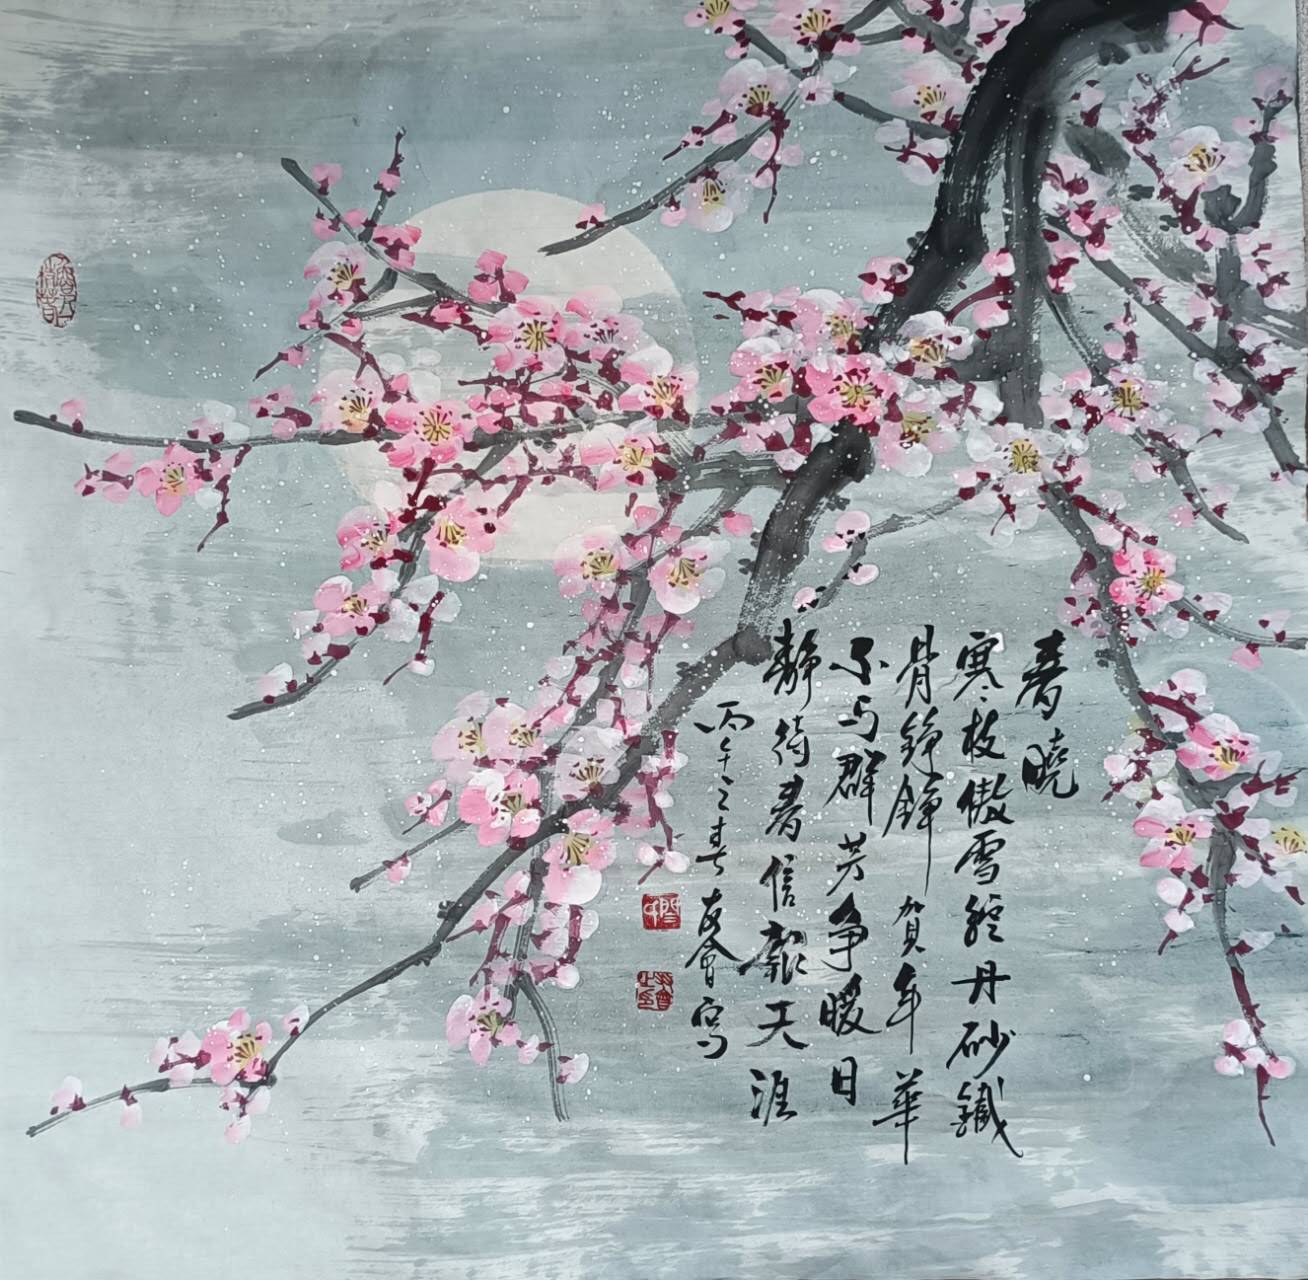 春曉
寒枝傲雪綻丹砂鐵
骨錚錚賀年華
不与群芳争暖日
静待春信報天涯
丙午之春友會写